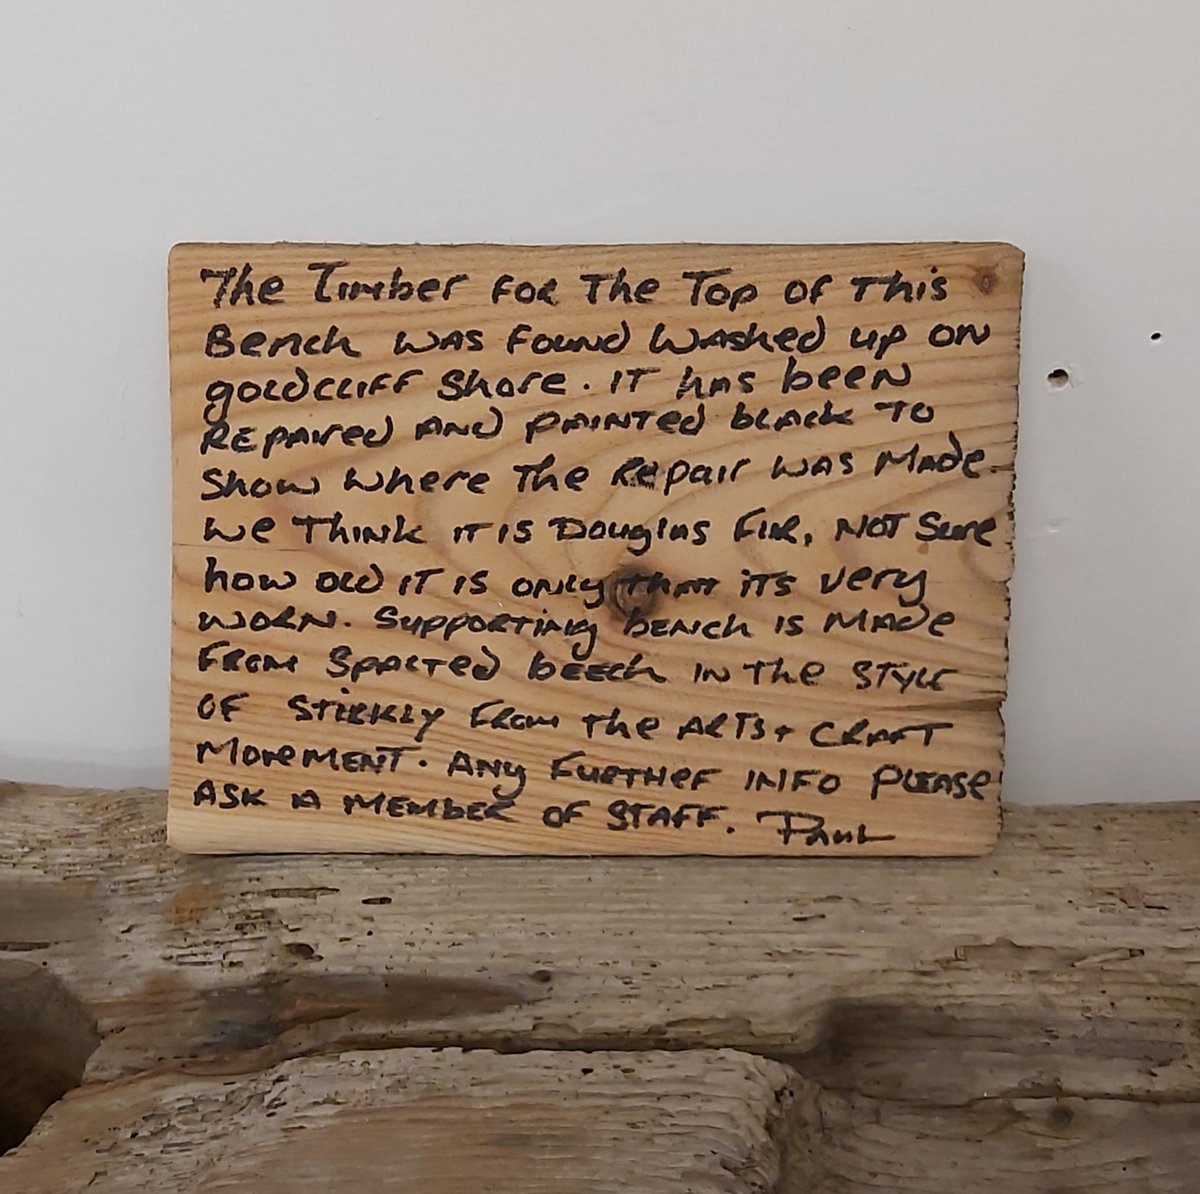 The Timber for The Top of This
Bench was found washed up on
goldcliff Shore. IT has been
Repaired AND painted black To
Show where The Repair was Made
we Think IT IS Douglas FIR, NOT Sure
how old IT IS only that ITS very
worn. Supporting bench is Made
From Spalted beech IN The STYLE
OF Stickly From The ARTS + CRAFT
MoveMENT. ANy FURTHER INFO PLEASE
ASK A MEMBER OF STAFF. Paul